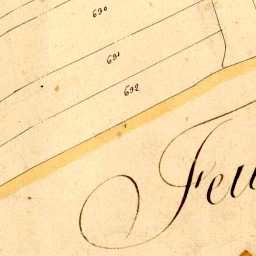 690
691
692
Feu